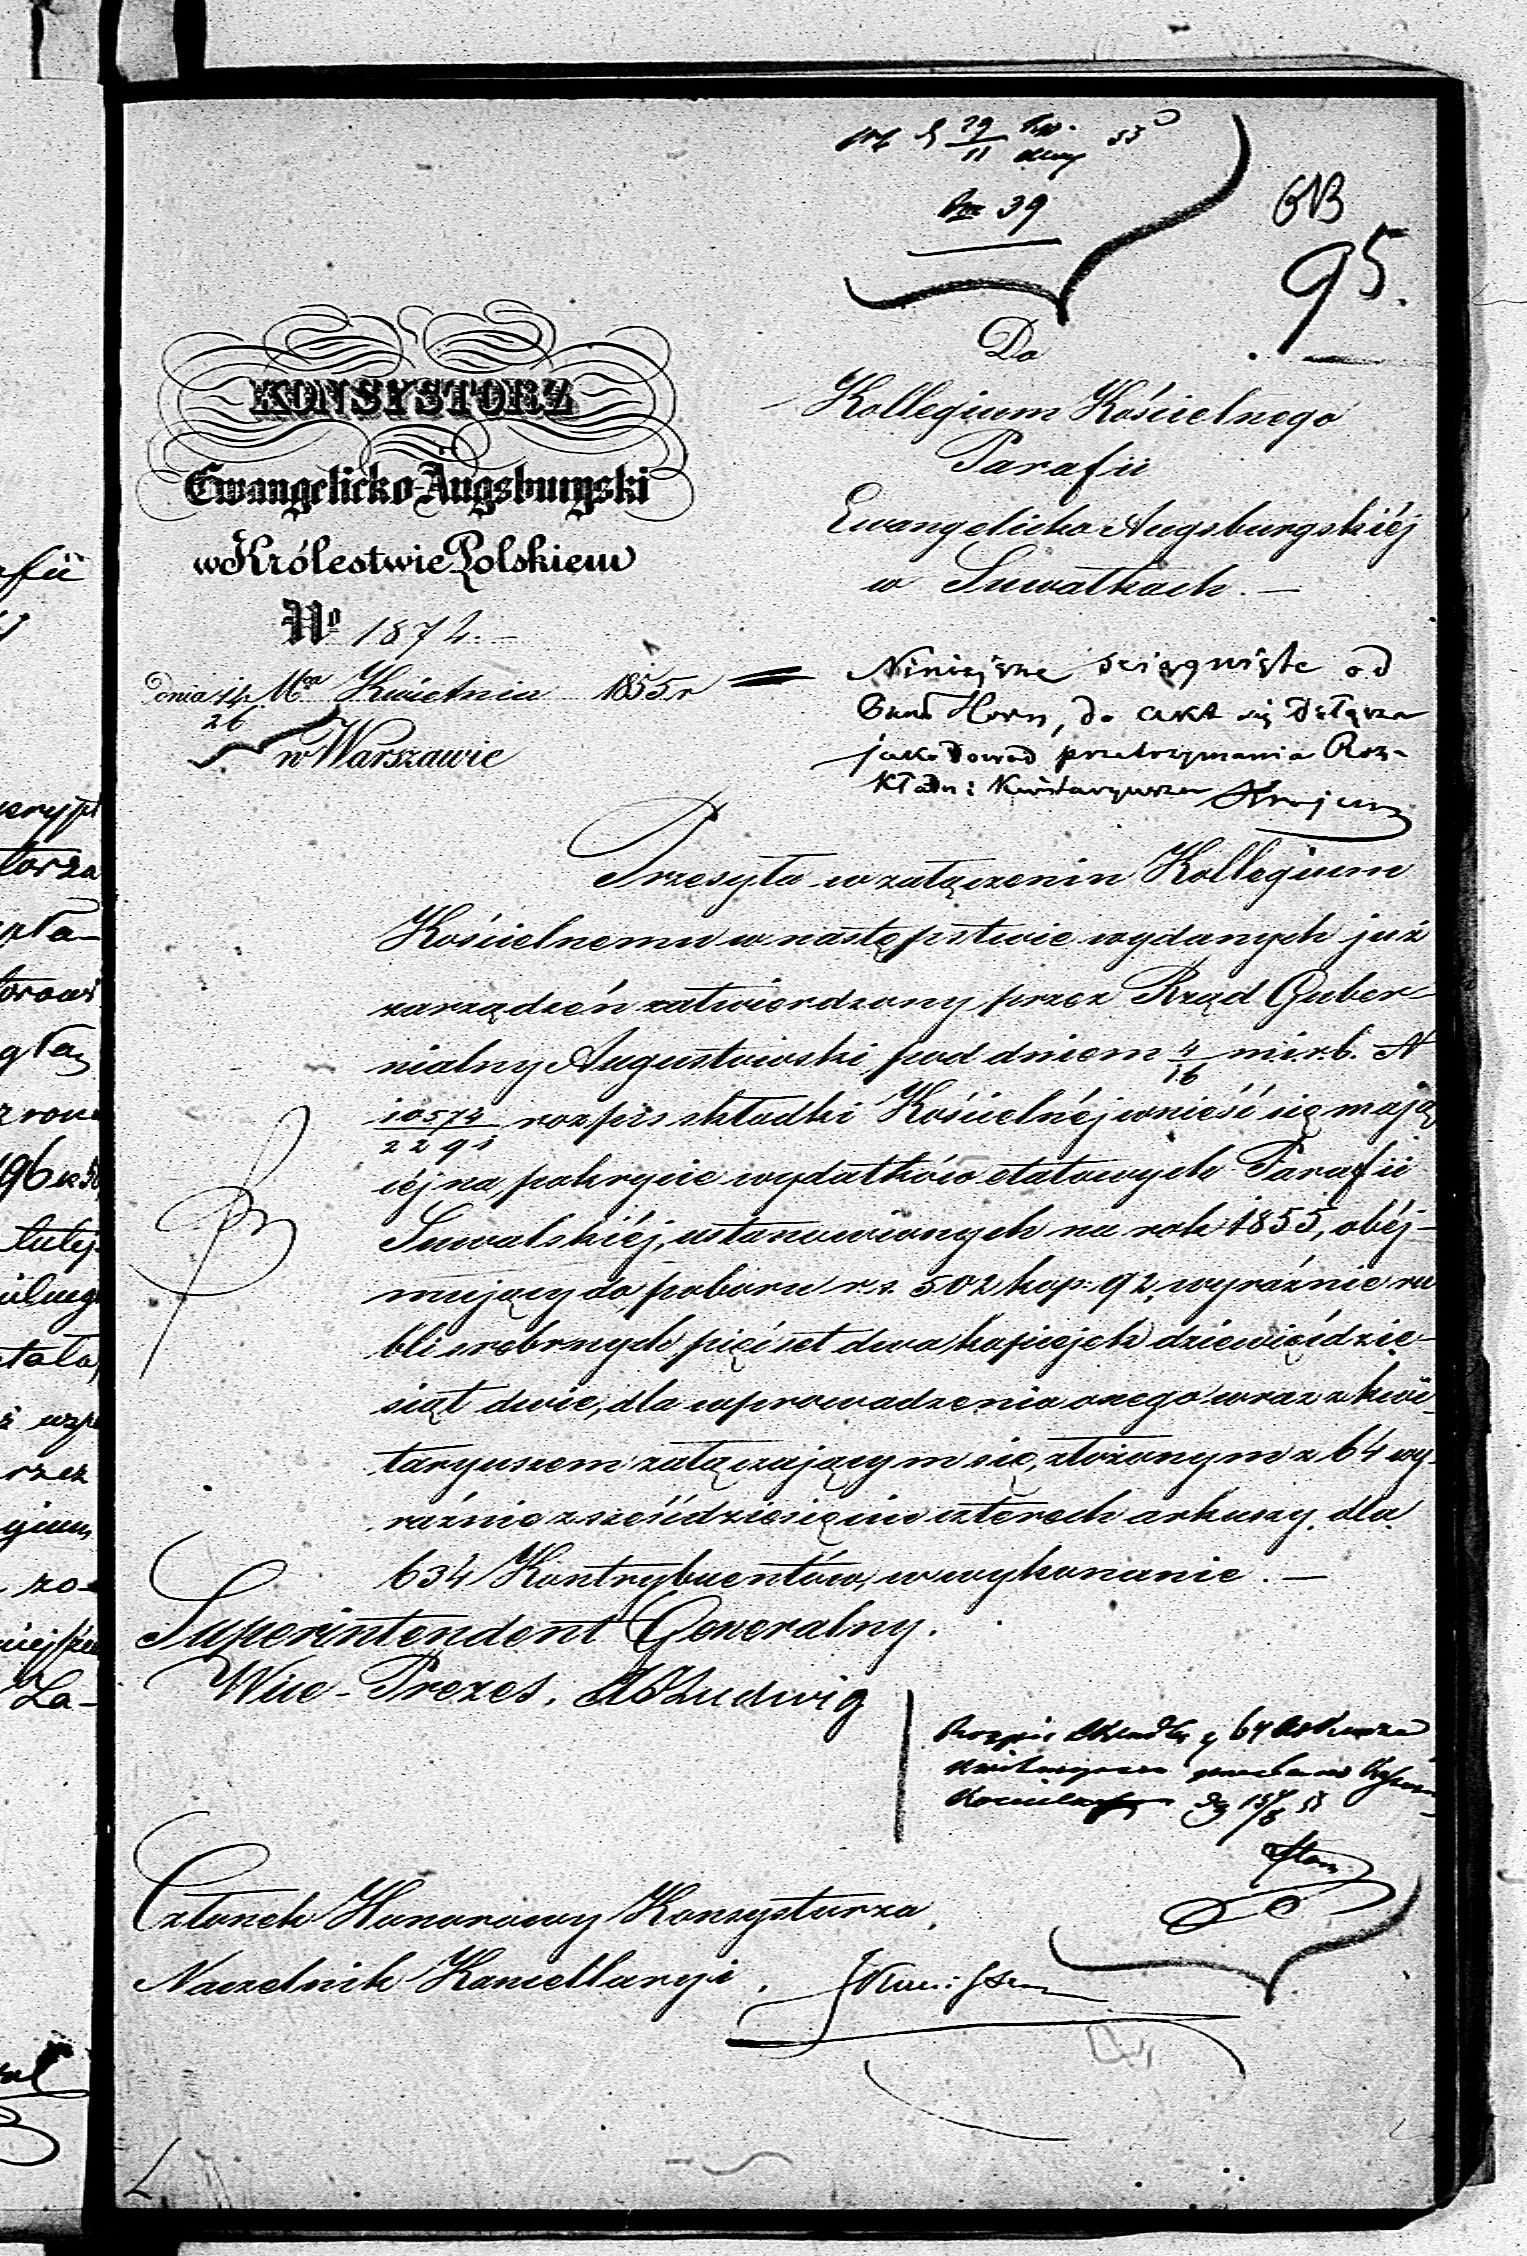 29/11 55
No 39
95.
KONSYSTORZ
Ewangelicko-Augsburgski
w Królestwie Polskiem
No 1872.
dnia 14/26 Mca Kwietnia 1855 r
w Warszawie
Do
Kollegium Kościelnego
Parafii
Ewangelicko Augsburgskiéj
w Suwałkach. —
Niniejsze ściągnięte od
Horn, do akt się dołącza
jako dowód przetrzymania Roz-
kładu i Kwitaryusza
Przesyła w załączeniu Kollegium
Kościelnemu w następstwie wydanych już
zarządzeń zatwierdzony przez Rząd Guber-
nialny Augustowski pod dniem 4/16 m. i r. b. N
10574/2291 rozpis składki Kościelnéj wnieść się mają
céj na pokrycie wydatków etatowych Parafii
Suwalskiéj, ustanowionych na rok 1855, obéj-
mujący do poboru r. s. 502 kop: 92, wyraźnie ru
bli srebrnych pięćset dwa kopiejek dziewięćdzie-
siąt dwie, dla wprowadzenia onego wraz z kwi-
taryuszem załączającym się, złożonym z 64 wy-
raźnie z sześćdziesięciu czterech arkuszy, dla
634 Kontrybuentów, w wykonanie. —
Superintendent Generalny.
Wice-Prezes. Ludwig
Rozpis składki i 64 Arkusze
Kwitaryusza
Członek Honorowy Konsystorza,
Naczelnik Kancellaryi.